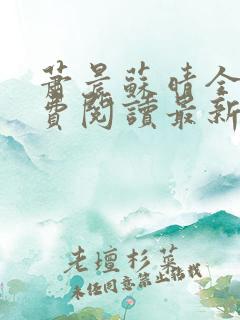 蕭晨蘇晴全
費閱讀最新
老壇杉菜
未經同意禁止轉載